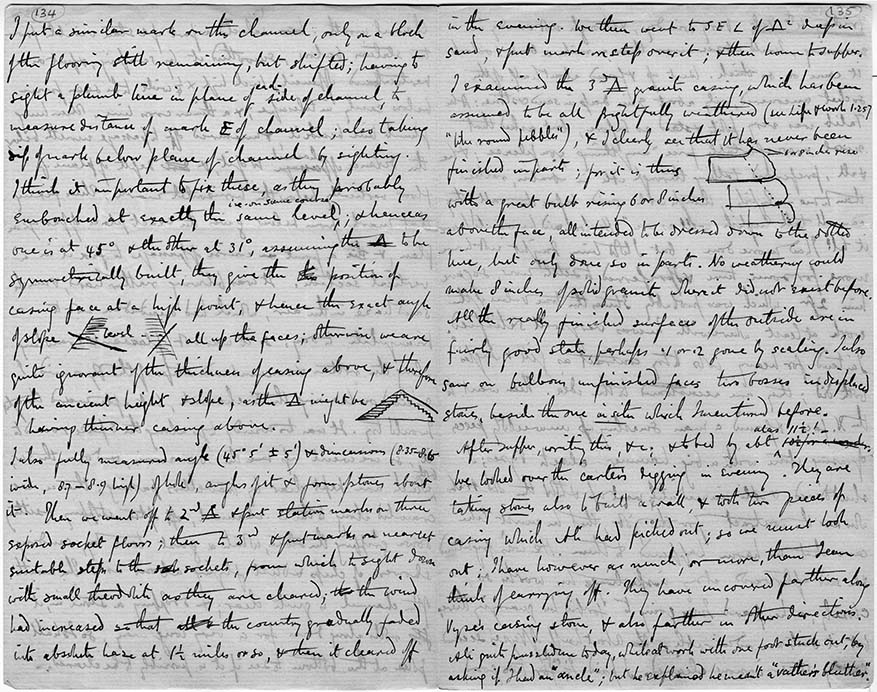 134
I put a similar mark on the channel, only on a block
of the flooring still remaining, but shifted; having to
sight a plumb line in plane of each side of channel, to
measure distance of mark E of channel; also taking
dip of mark below plane of channel by sighting.
I think it important to fix these, as they probably
embouched at exactly the same level, i.e. on same course; & hence as
one is at 45° & the other at 31°, assuming the Δ to be
symmetrically built, they give the position of
casing face at a high point, & hence the exact angle
of slope level all up the faces; otherwise we are
quite ignorant of the thickness of casing above, & therefore
of the ancient height & slope, as the Δ might be
having thinner casing above.
I also fully measured angle (45° 5' ± 5') & dimensions (8.35-8.65
wide, 8.7-8.9 high) of hole, angles of it & form of stones about
it. Then we went off to 2nd Δ & put station marks on three
exposed socket floors; then to 3rd & put marks on nearest
suitable steps to the sockets, from which to sight down
with small theodolite as they are cleared; the wind
had increased so that the country gradually faded
into absolute haze at 1½ miles or so, & then it cleared off
135
in the evening. We then went to S E ∠ of Δ2 deep in
sand, & put mark on step over it; & then home to supper.
I examined the 3rd Δ granite casing, which has been
assumed to be all frightfully weathered (in Life & Work 1.257
"like round pebbles"), & I clearly see that it has never been
finished in parts; for it is thus 6 or 8 inch rise
with a great bulb rising 6 or 8 inches
above the face, all intended to be dressed down to the dotted
line, but only done so in parts. No weathering could
make 8 inches of solid granite where it did not exist before.
All the really finished surfaces of the outside are in
fairly good state, perhaps .1 or .2 gone by scaling. I also
saw on bulbous unfinished faces two bosses in displaced
stones, beside the one in situ which I mentioned before.
After supper, writing this, &c; & to bed by abt alas 11½!–
We looked over the carters digging in evening. They are
taking stones also to build a wall, & took two pieces of
casing which Ali had picked out; so we must look
out. I have however as much, or more, than I can
think of carrying off. They have uncovered farther along
Vyse's casing stone, & also farther in other directions.
Ali quite puzzled me today, while at work with one foot stuck out, by
asking if I had an "ancle"; but he explained he meant a "vather's bluther."